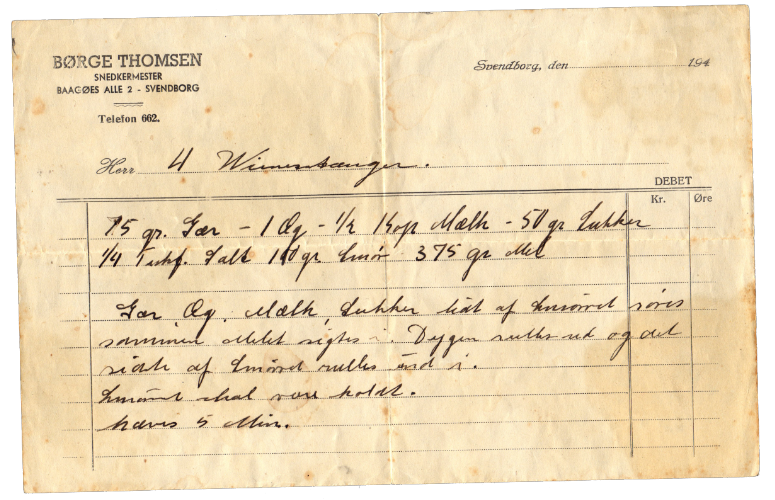 BØRGE THOMSEN
SNEDKERMESTER
BAAGØES ALLE 2 - SVENDBORG
Telefon 662.
Svendborg, den 194
Herr 4 Wienerstænger.
DEBET
Kr. Øre
75 gr. Gær - 1 Æg - 1/2 Kop Mælk - 50 gr Sukker
1/4 Teskf. Salt 110 gr Smør 375 gr Mel
Gær Æg, Mælk, Sukker lidt af Smørret røres
sammen Melet sigtes i. Dejgen rulles ud og det
sidste af Smørret rulles ind i.
Smørret skal være koldt.
Hæves 5 Min.